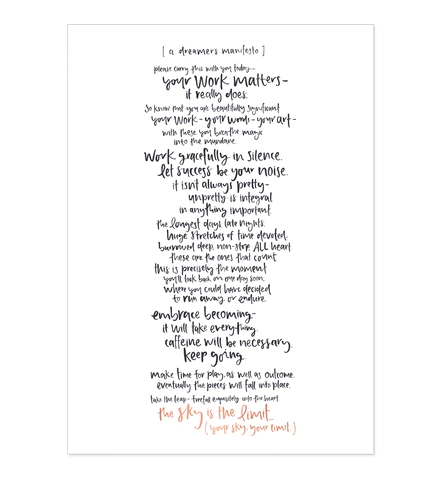 [ a dreamers manifesto ]
please carry this with you today...
your work matters-
it really does.
so know that you are beautifully significant
your work - your words - your art -
with these you breathe magic
into the mundane.
work gracefully in silence.
let success be your noise.
it isnt always pretty-
unpretty is integral
in anything important.
the longest days, late nights,
huge stretches of time devoted,
burrowed deep, non-stop, ALL heart
these are the ones that count
this is precisely the moment
you'll look back on one day soon.
where you could have decided
to run away or endure.
embrace becoming-
it will take everything.
caffeine will be necessary.
keep going.
make time for play, as well as outcome.
eventually the pieces will fall into place.
take the leap - freefall exquisitely into the heart.
the sky is the limit.
(your sky, your limit.)